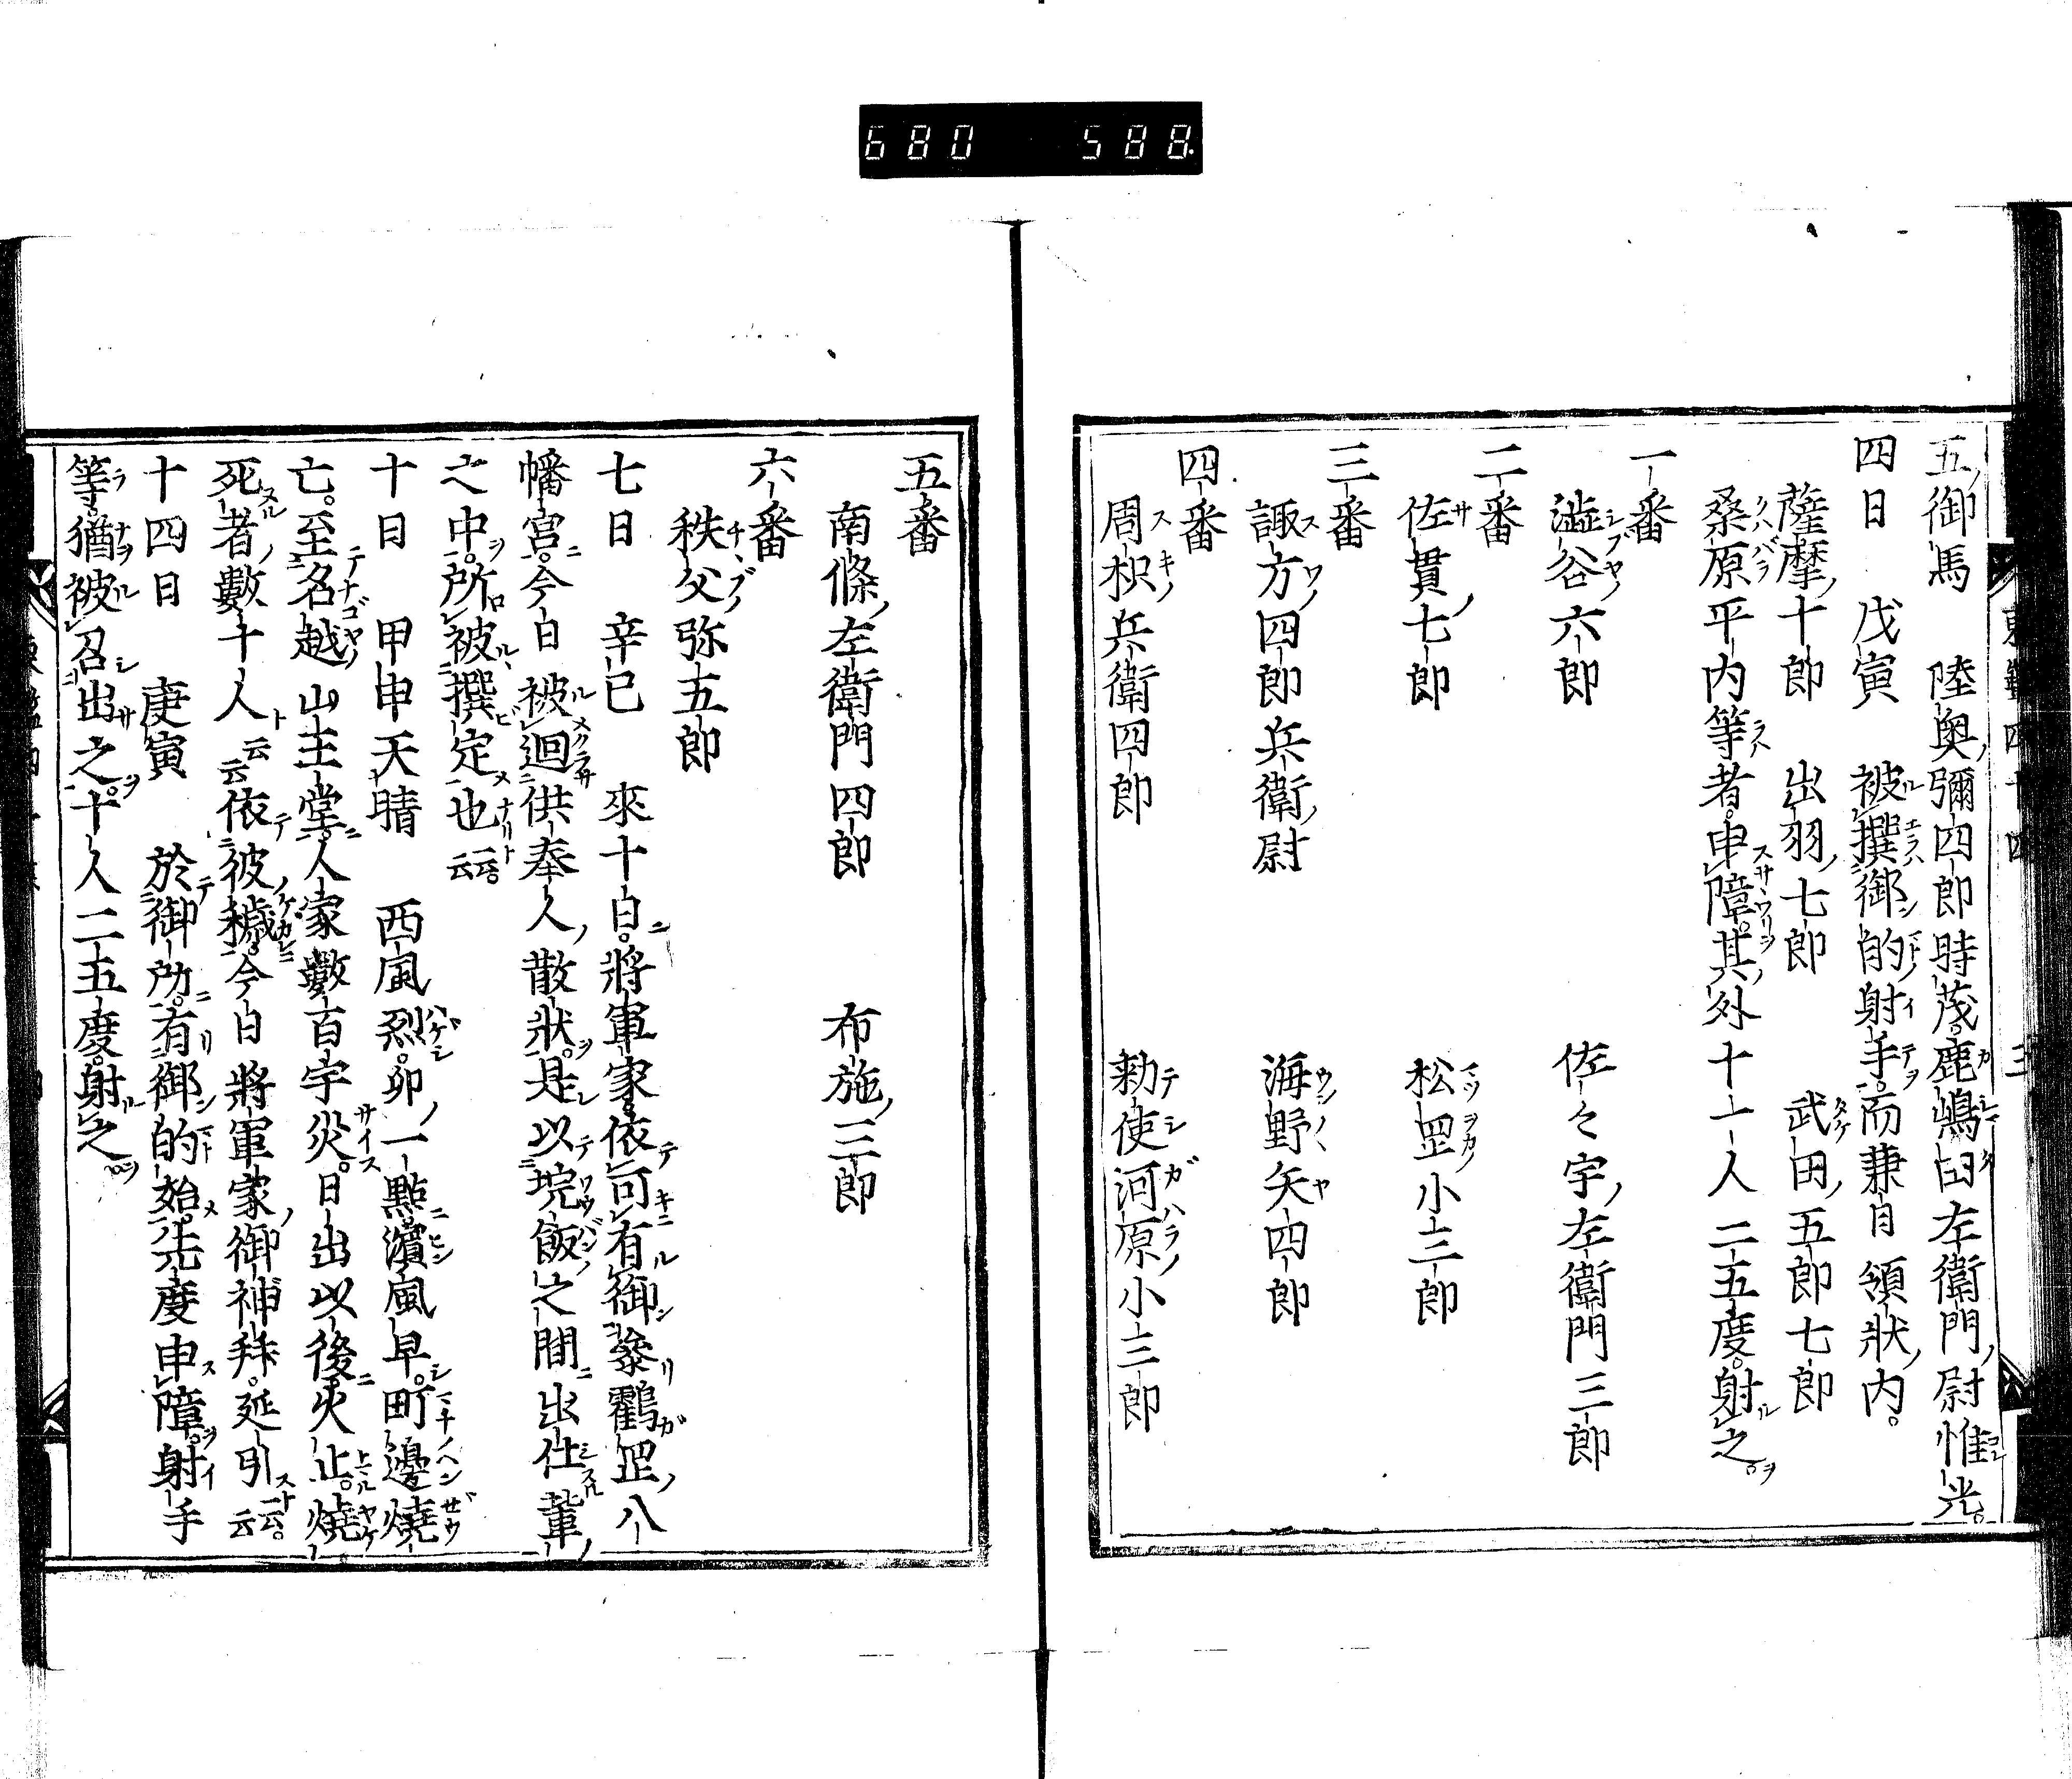 680 588.
五御馬 陸奥彌四郎時茂鹿嶋田左衛門尉惟光
四日 戊寅 被撰御的射手而兼日領狀内
薩摩十郎 出羽七郎 武田五郎七郎
桑原平内等者申障其外十一人二五度射之
一番
澁谷六郎 佐々宇左衛門三郎
二番
佐貫七郎 松罡小三郎
三番
諏方四郎兵衛尉 海野矢四郎
四番
周枳兵衛四郎 勅使河原小三郎
五番
南條左衛門四郎 布施三郎
六番
秩父弥五郎
七日 辛巳 來十日將軍家依可有御參鶴罡八
幡宮今日被迴供奉人散狀是以垸飯之間出仕輩
之中所被撰定也云云
十日 甲申天晴 西風烈卯一點濱風早町邊燒
亡至名越山王堂人家數百宇災日出以後火止燒
死者數十人云云依彼穢今日將軍家御神拜延引云云
十四日 庚寅 於御所有御的始先度申障射手
等猶被召出之十人二五度射之